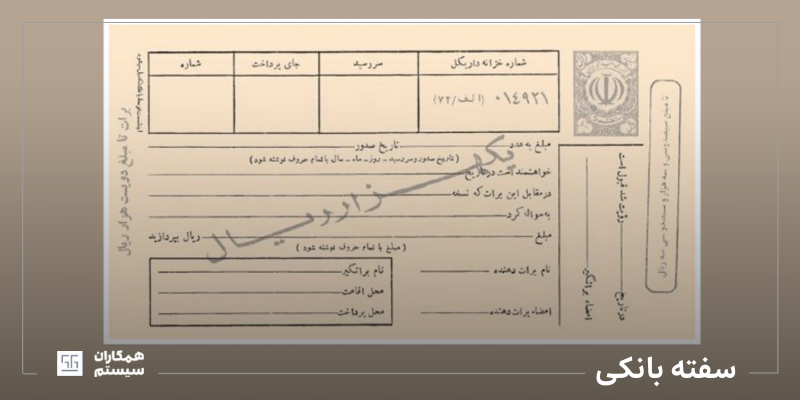 شماره خزانه داریکل
سررسید
جای پرداخت
شماره
۰۱٤۹۲۱ (الف/۷۲)
برات تا مبلغ دویست هزار ریال
تا مبلغ سیصد و سی و سه هزار و سیصد و سی سه ریال
مبلغ به عدد تاریخ صدور
(تاریخ صدور و سررسید - روز - ماه - سال با تمام حروف نوشته شود)
خواهشمند است در تاریخ
در مقابل این برات که نسخه
به حواله کرد
مبلغ ریال بپردازید
(مبلغ با تمام حروف نوشته شود)
یکهزار ریال
رؤیت شد قبول است
در تاریخ
امضاء براتگیر
نام برات دهنده
امضاء برات دهنده
نام براتگیر
محل اقامت
محل پرداخت
همکاران
سیستم
سفته بانکی